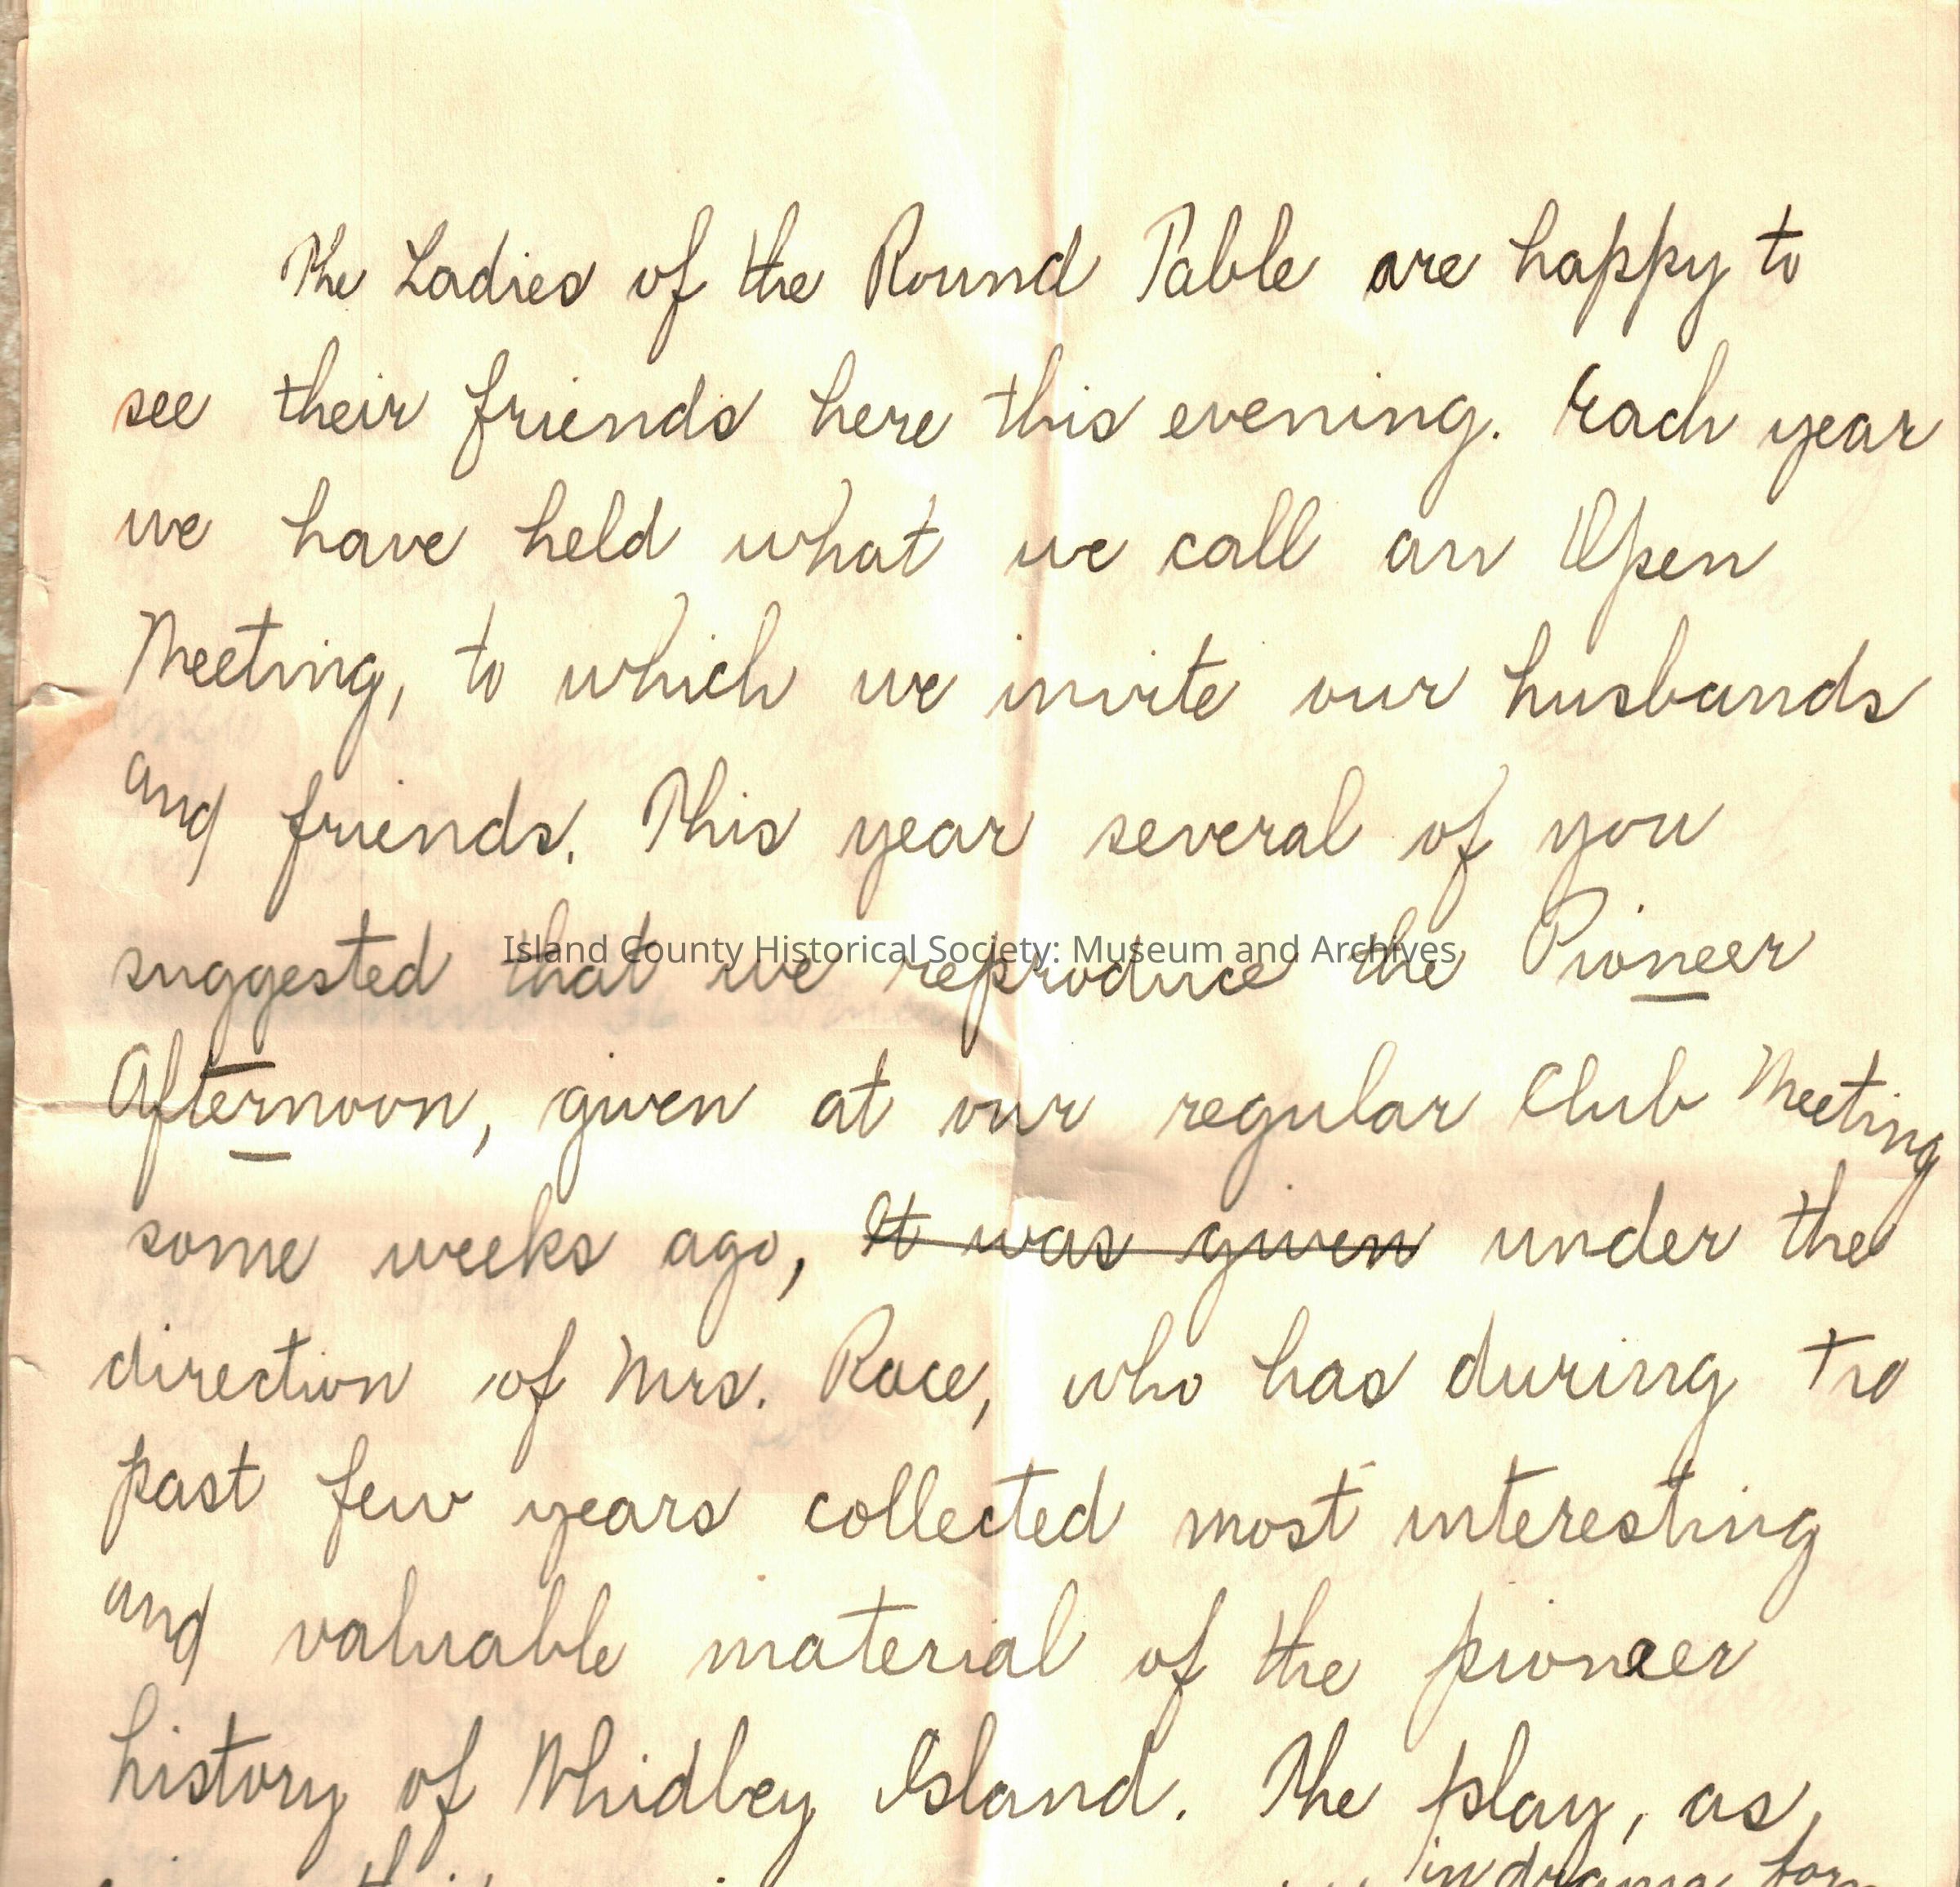 The Ladies of the Round Table are happy to
see their friends here this evening. Each year
we have held what we call an Open
Meeting, to which we invite our husbands
and friends. This year several of you
suggested that we reproduce the Pioneer
Island County Historical Society: Museum and Archives
Afternoon, given at our regular Club Meeting
some weeks ago, It was given under the
direction of Mrs. Race, who has during
past few years collected most interesting
and valuable material of the pioneer
history of Whidbey Island. The play, as
in drama form